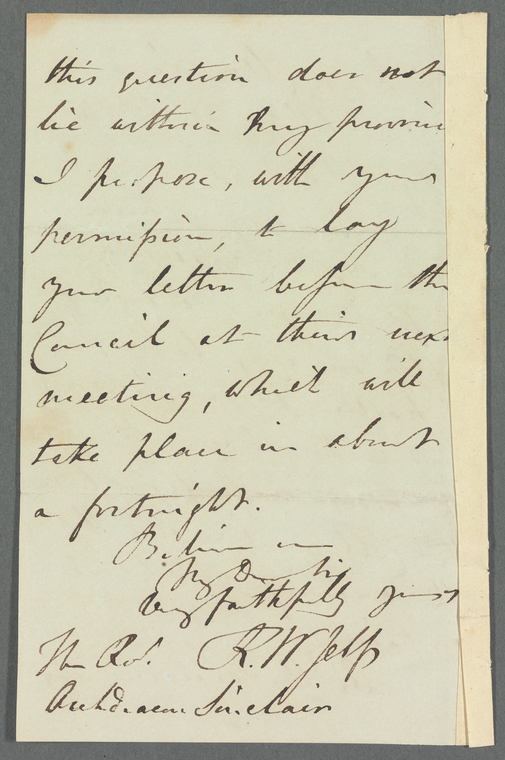 this question does not
lie within my provin
I propose, with your
permission, to lay
your letter before the
Council at their nex
meeting, which will
take place in about
a fortnight.
Believe me
My Dear Sir
Very faithfully yours
The Rev. R. W. Jelf
Archdeacon Sinclair